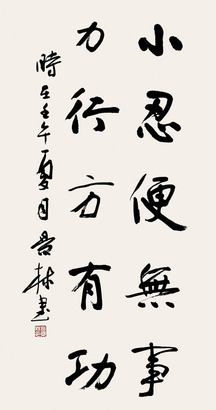 小忍便無事
力行方有功
時在壬午夏月景林書